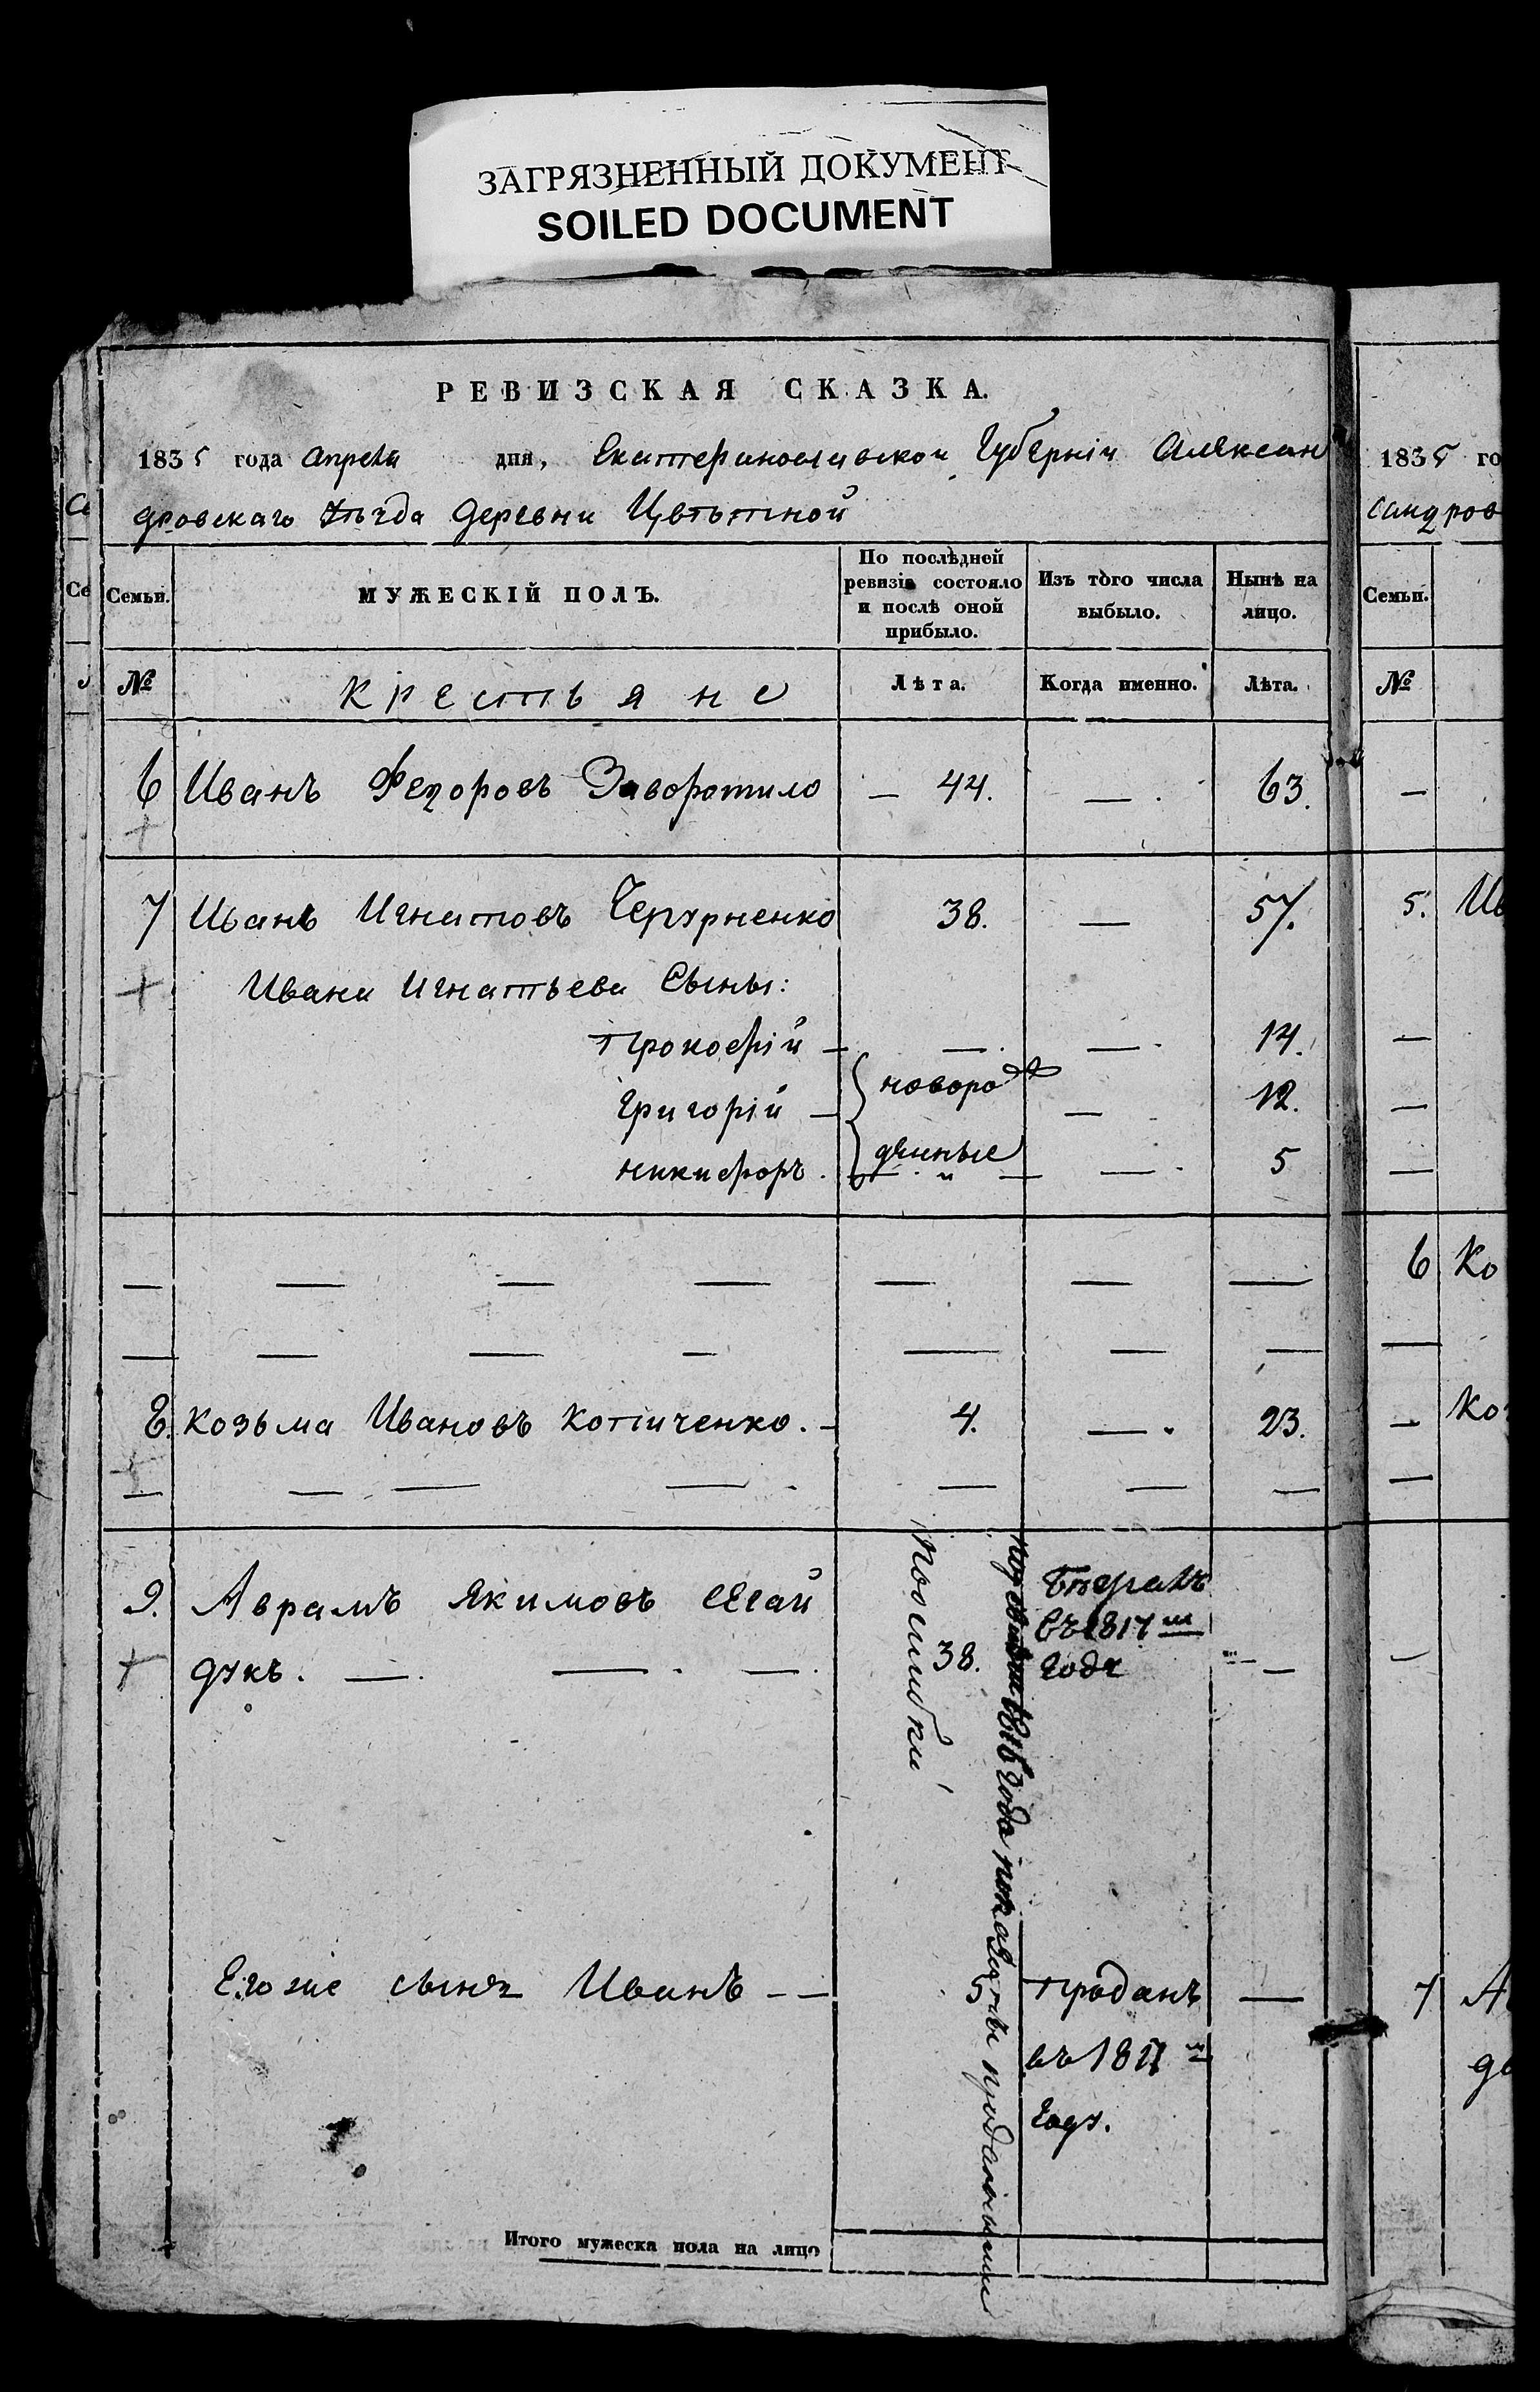 ЗАГРЯЗНЕННЫЙ ДОКУМЕНТ
SOILED DOCUMENT
РЕВИЗСКАЯ СКАЗКА.
1835 года Апреля дня, Екатеринославской Губерніи Алексан
дровскаго Уѣзда Деревни Цвѣтной
Семьи.
МУЖЕСКІЙ ПОЛЪ.
По послѣдней ревизіи состояло и послѣ оной прибыло.
Изъ того числа выбыло.
Нынѣ на лицо.
№ Крестьяне Лѣта. Когда именно. Лѣта.
6 Иванъ Федоровъ Заворотило — 44. — . 63.
7 Иванъ Игнатовъ Чепурненко 38. — 57.
Ивана Игнатьева Сыны:
Прокофій — — . — . 14.
Григорій — новоро — 12.
Никифоръ . жденные — . 5
— — — — — — —
— — — — — — —
8. Козьма Ивановъ Котиченко . - 4. — . 23.
— — — — — — —
9. Аврамъ Якимовъ Сегай
дукъ . — . — . — . 38. Умеръ въ 1817 м году —
Его же сынъ Иванъ — — 5 Проданъ —
въ 1817 м
году.
по ошибки
1816 года показаты проданными
Итого мужеска пола на лицо
1835 го
сандров
Семьи.
№
5. Ив
6 Ко
Ко
7 А